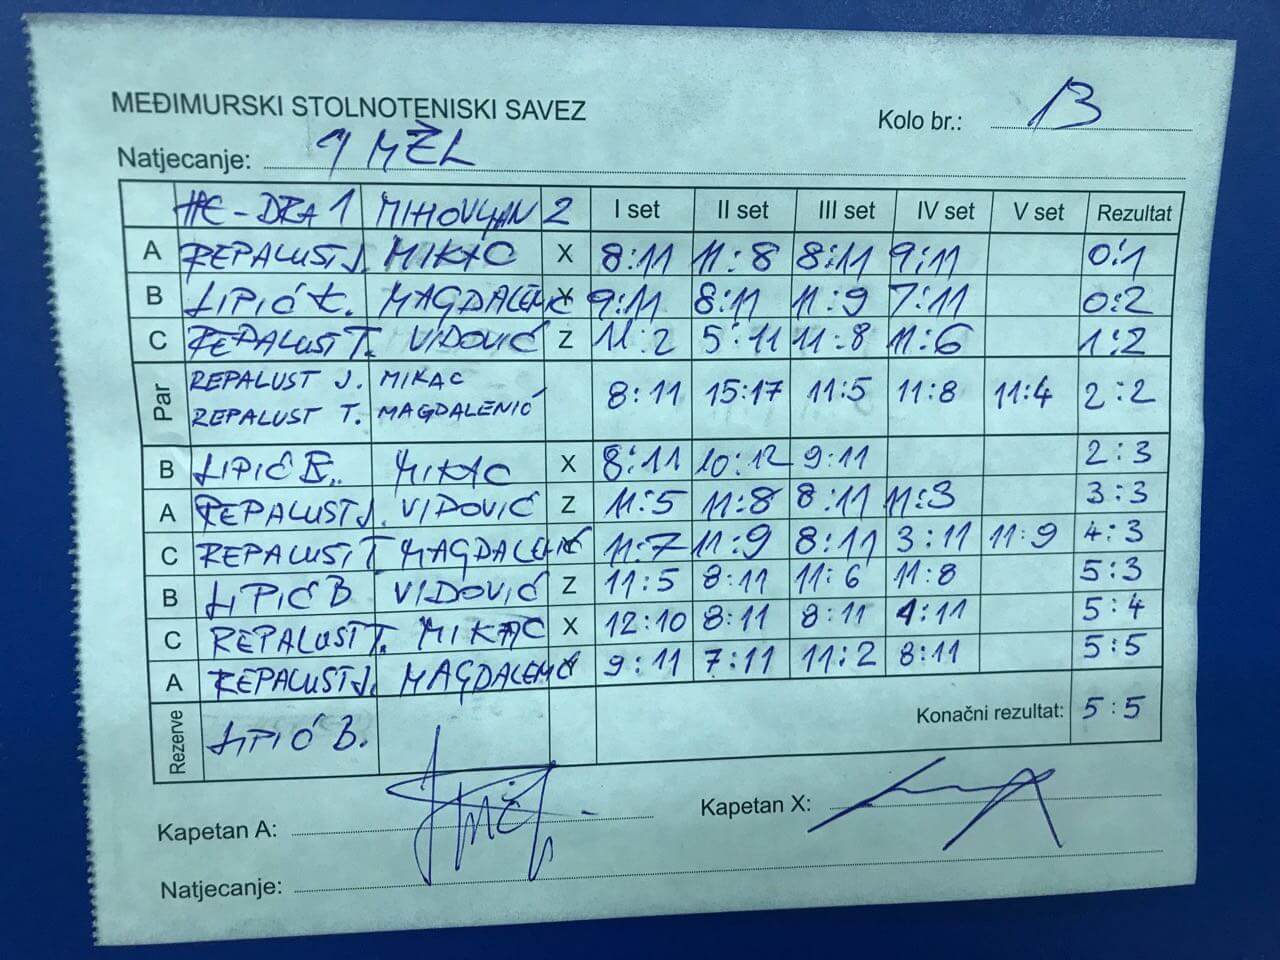 MEĐIMURSKI STOLNOTENISKI SAVEZ
Kolo br.: 13
Natjecanje: 1 MŽL
HC-DRA 1 MIHOVLJAN 2 I set II set III set IV set V set Rezultat
A REPALUST J. MIKAC X 8:11 11:8 8:11 9:11 0:1
B LIPIĆ MAGDALENIĆ Y 9:11 8:11 11:9 7:11 0:2
C REPALUST T. VIDOVIĆ Z 11:2 5:11 11:8 11:6 1:2
Par REPALUST J. MIKAC 8:11 15:17 11:5 11:8 11:4 2:2
REPALUST T. MAGDALENIĆ
B LIPIĆ MIKAC X 8:11 10:12 9:11 2:3
A REPALUST J. VIDOVIĆ Z 11:5 11:8 8:11 11:3 3:3
C REPALUST T MAGDALENIĆ 11:7 11:9 8:11 3:11 11:9 4:3
B LIPIĆ B VIDOVIĆ Z 11:5 8:11 11:6 11:8 5:3
C REPALUST T. MIKAC X 12:10 8:11 8:11 4:11 5:4
A REPALUST J. MAGDALENIĆ 9:11 7:11 11:2 8:11 5:5
Rezerve LIPIĆ B. Konačni rezultat: 5:5
Kapetan A: Kapetan X:
Natjecanje: